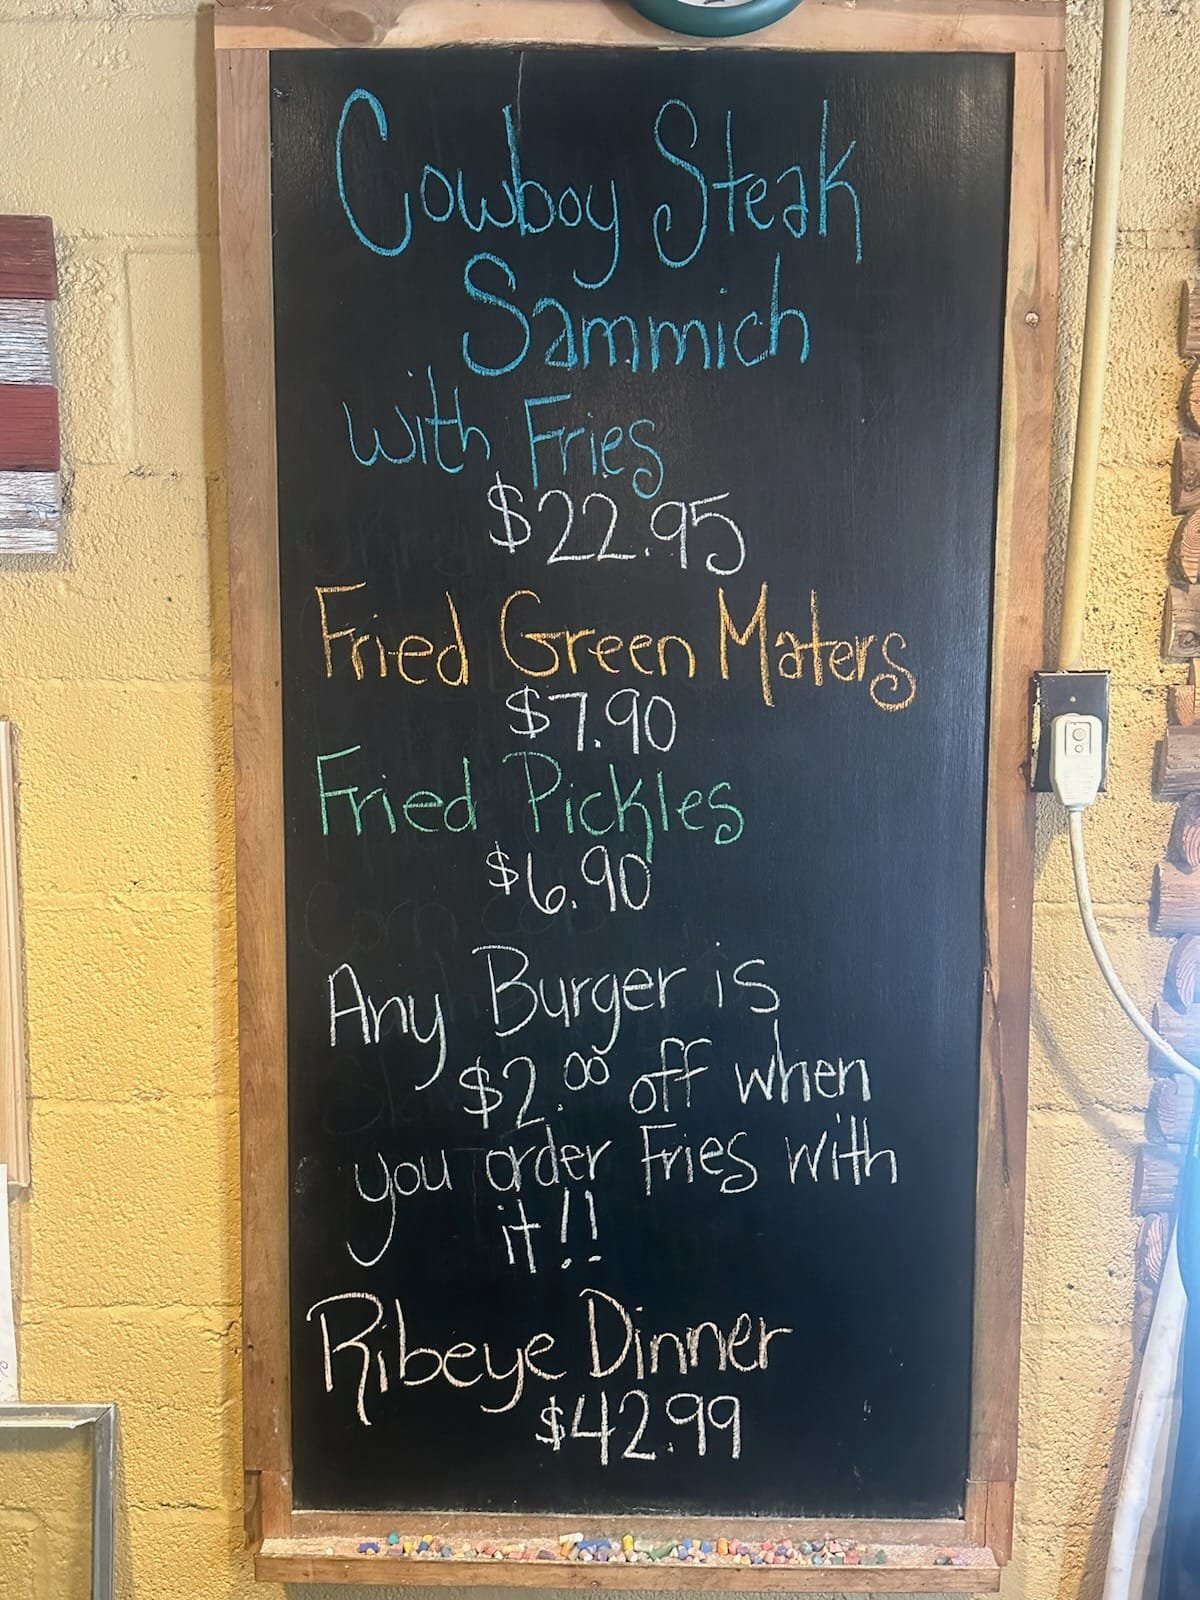 Cowboy Steak
Sammich
with Fries
$22.95
Fried Green Maters
$7.90
Fried Pickles
$6.90
Any Burger is
$2.00 off when
you order Fries with
it!!
Ribeye Dinner
$42.99